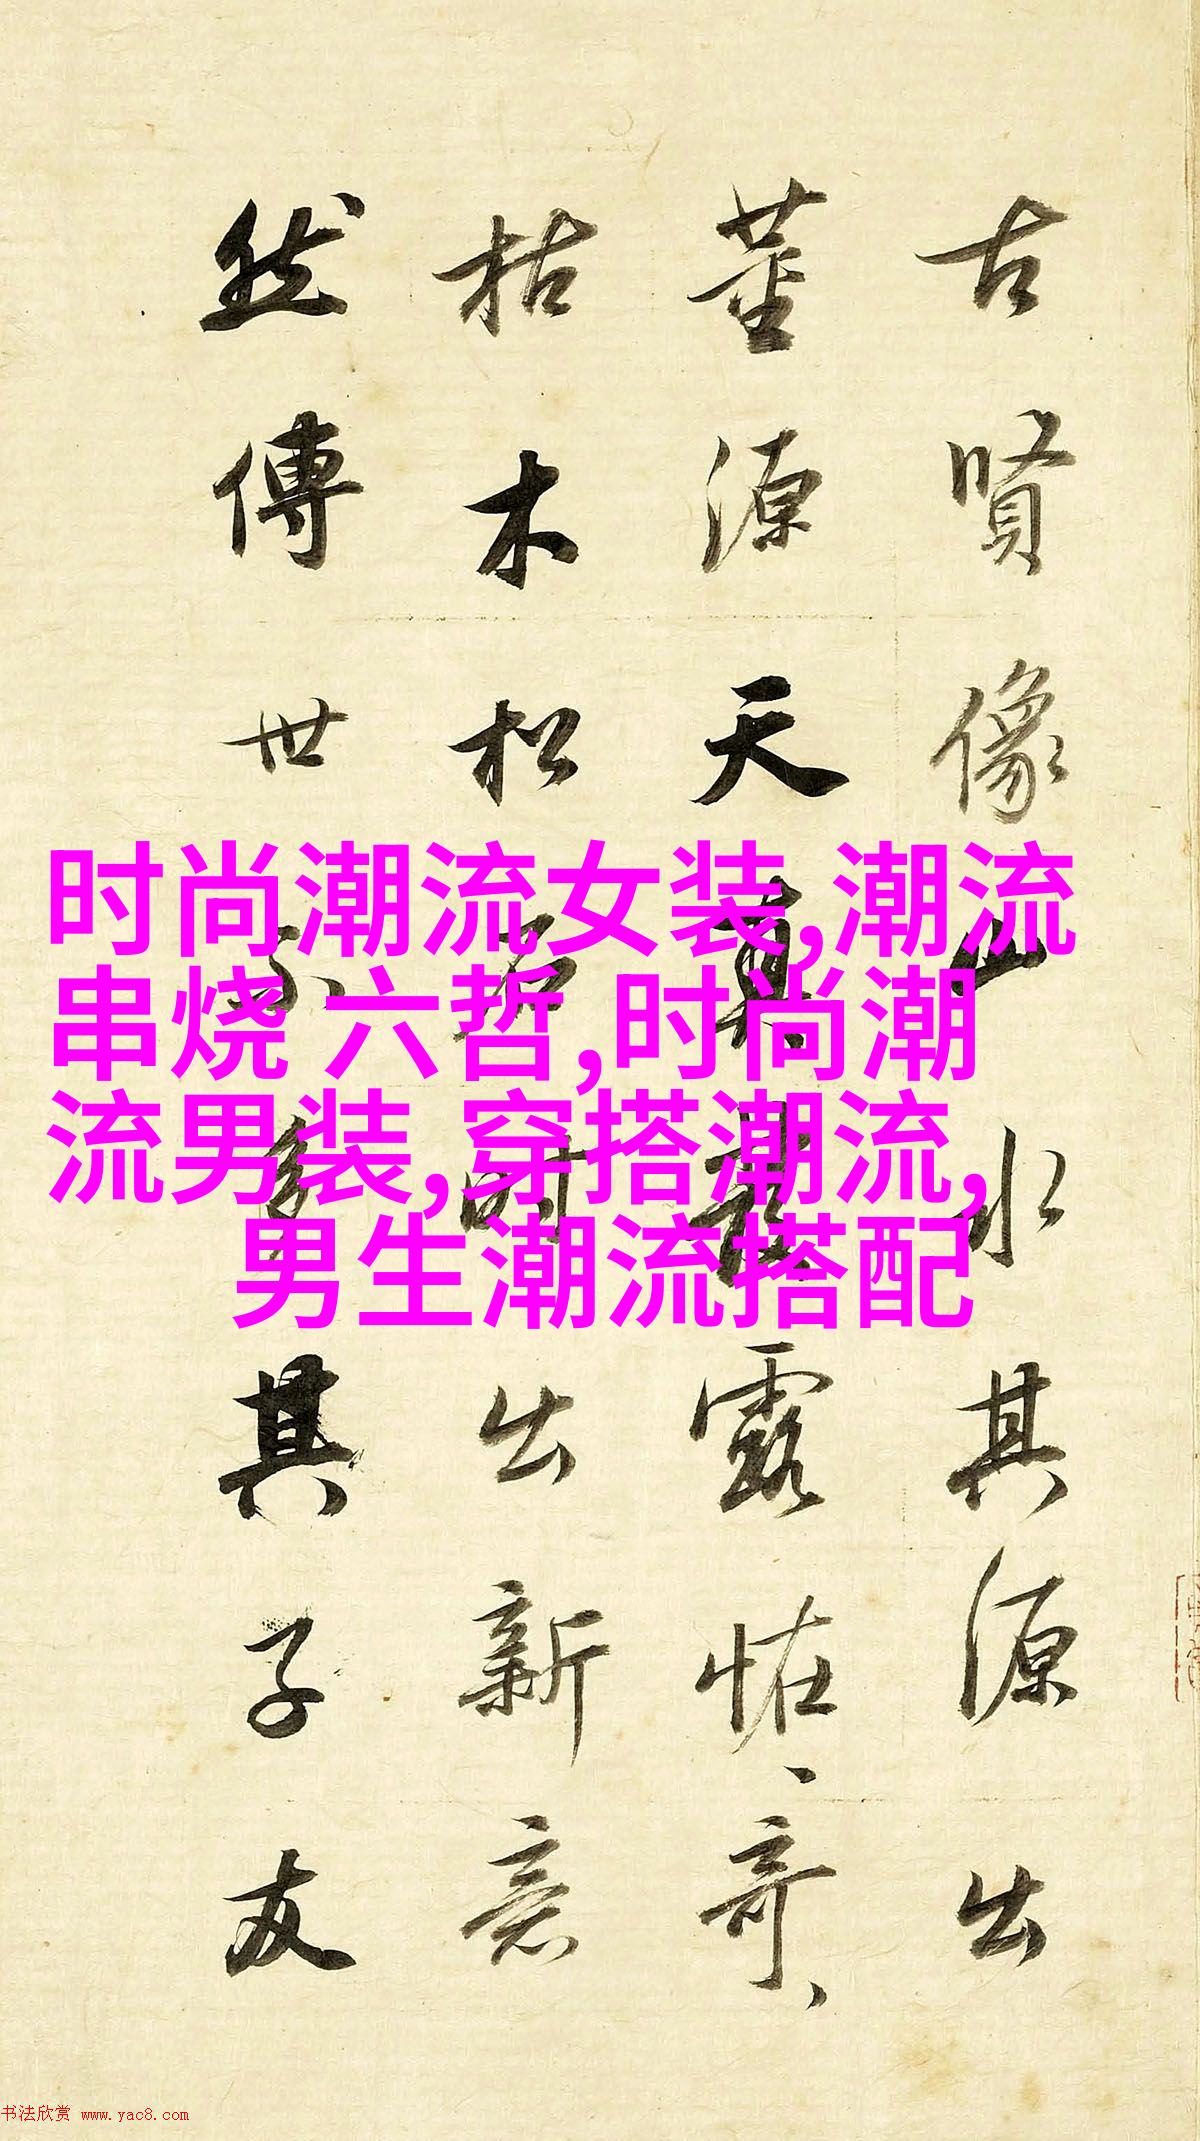 古賢像山水其源出
董源天真叢露恠々奇々
枯木松石時出新意
然傳世不多其子友
时尚潮流女装,潮流
串烧 六哲,时尚潮
流男装,穿搭潮流,
男生潮流搭配
书法欣赏 www.yac8.com